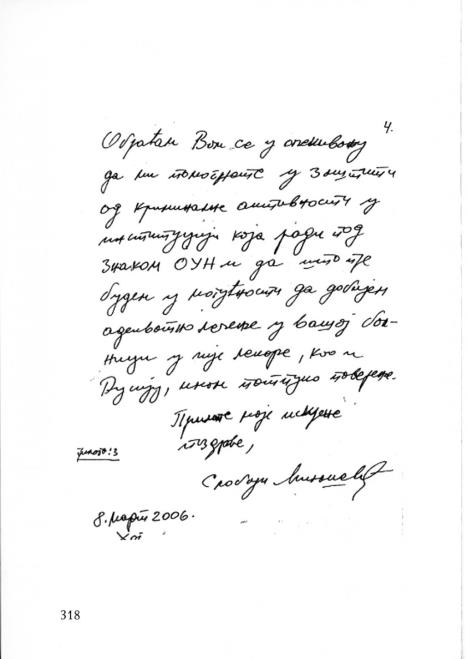 4.
Обраћам Вам се у очекивању
да ми помогнете у заштити
од криминалне активности у
институцији која ради под
знаком ОУН и да што пре
будем у могућности да добијем
адекватно лечење у вашој бол-
ници у чије лекаре, као и
Русију, имам потпуно поверење.
Примите моје искрене
поздраве,
прилога: 3
Слободан Милошевић
8. март 2006.
Хаг
318